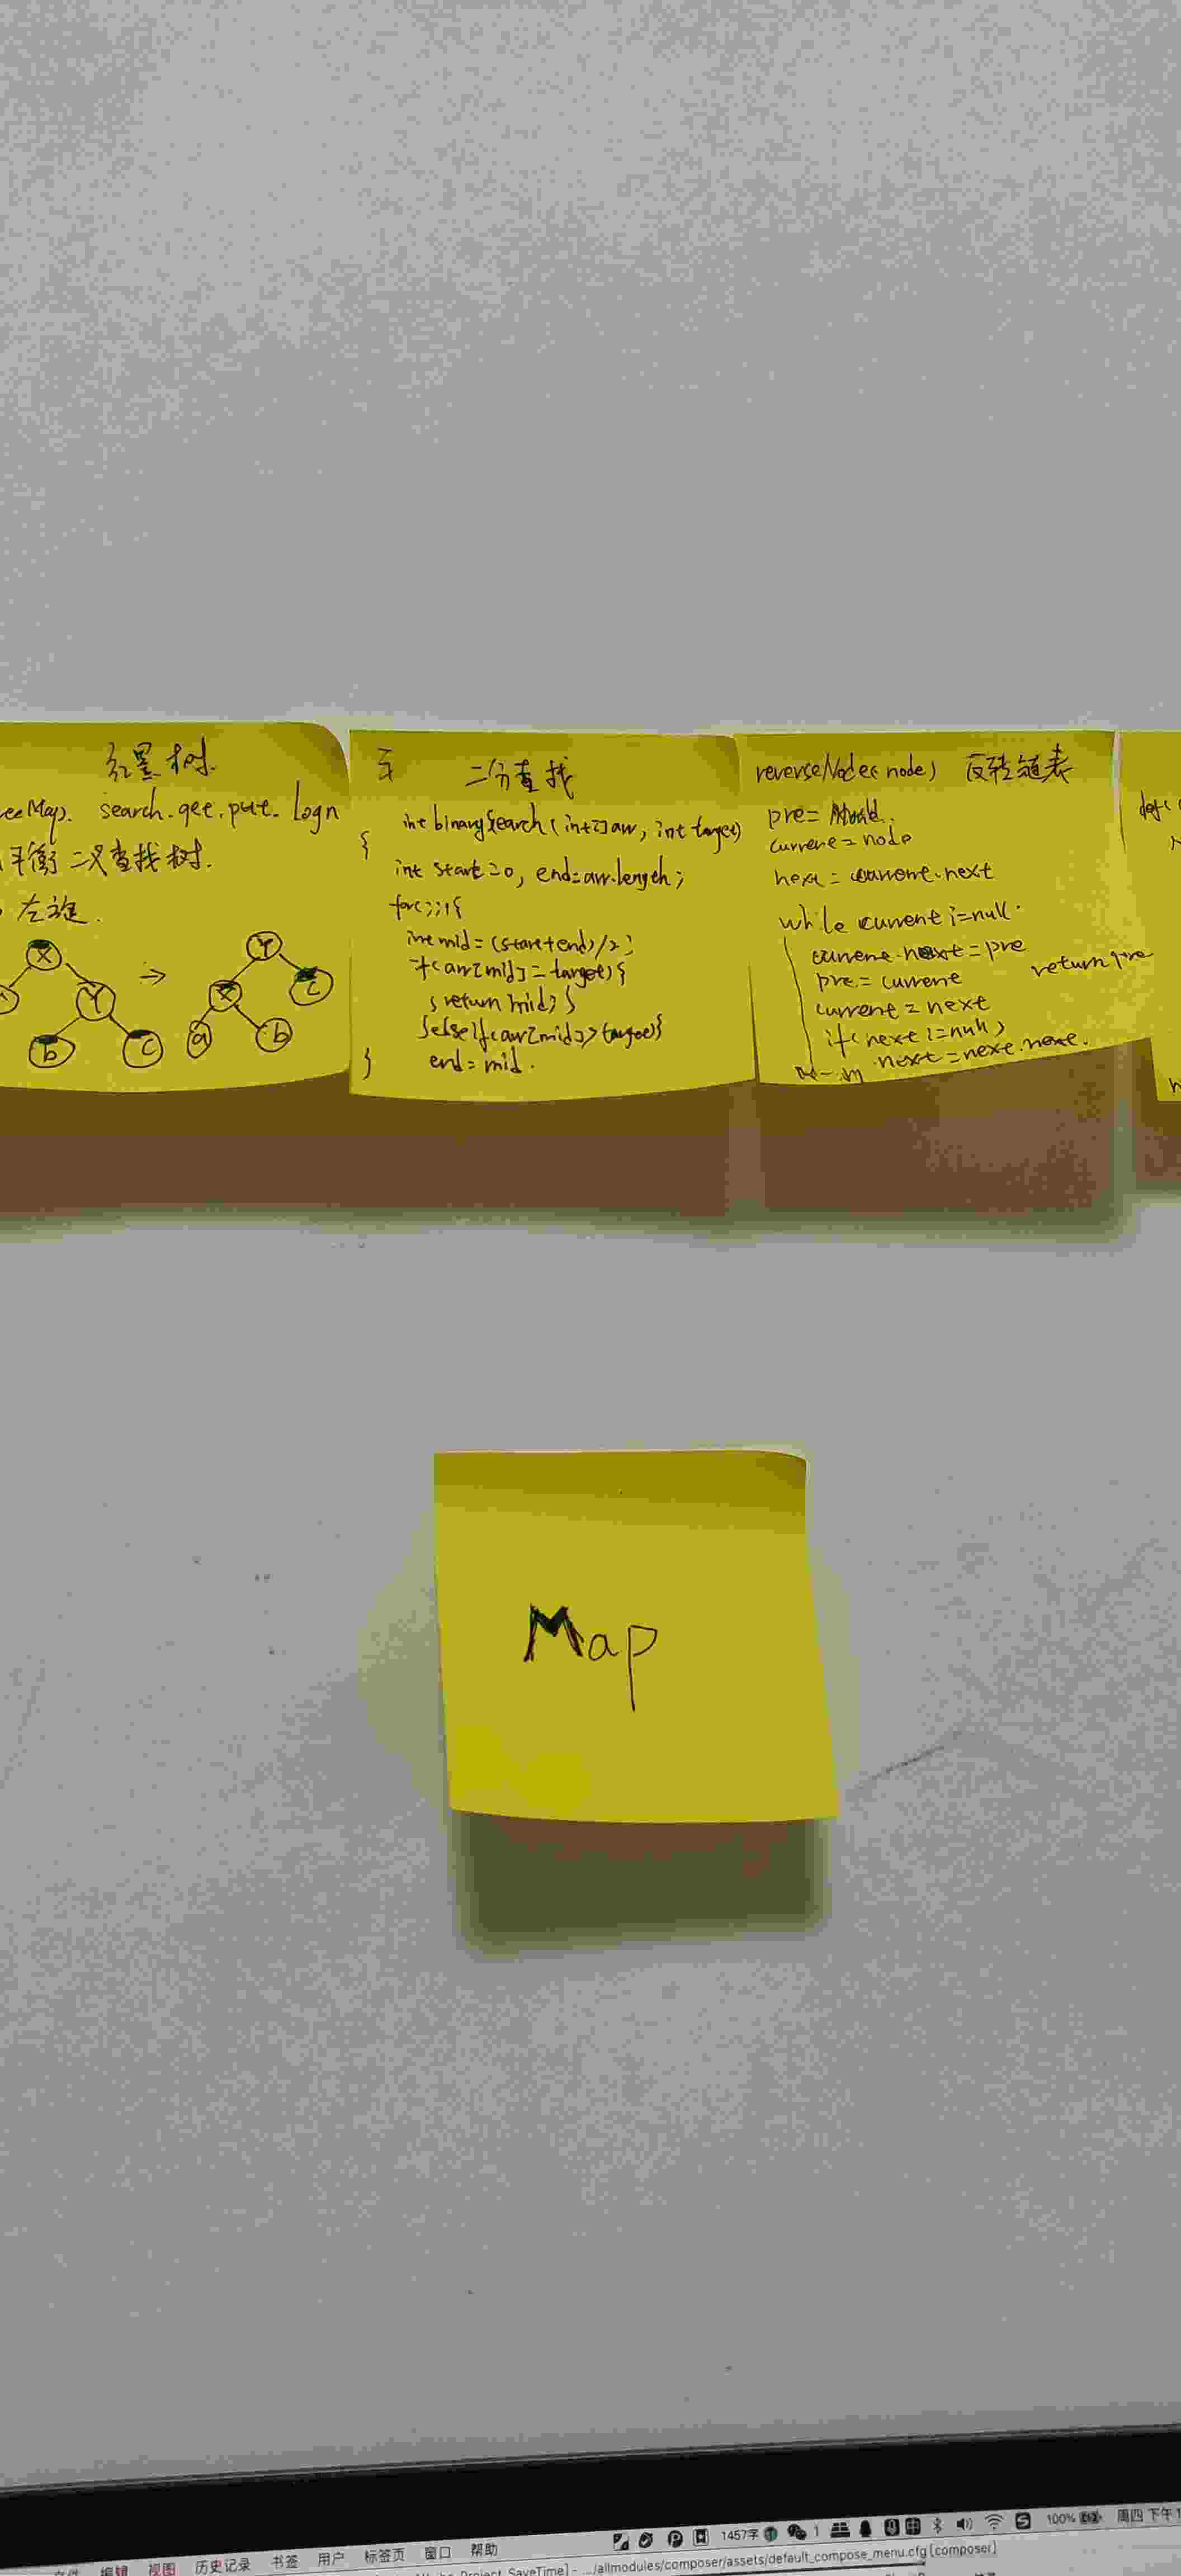 红黑树.
eeMap. search.get.put. logn
平衡二叉查找树.
左旋.
X
Y
b
c
→
Y
X
c
a
b
二分查找
int binarySearch(int[]arr, int target)
{
int start=0, end=arr.length;
for(;;){
int mid=(start+end)/2;
if(arr[mid]=target){
return mid;}
}else if(arr[mid]>target){
end=mid.
}
reverseNode(node) 反转链表
pre=
current=node
next=current.next
while current!=null.
current.next=pre
pre=current
return pre
current=next
if(next!=null)
next=next.next.
def(
Map
1457字 1 100% 周四 下午1
文件 编辑 视图 历史记录 书签 用户 标签页 窗口 帮助
Project SaveTime] - .../allmodules/composer/assets/default_compose_menu.cfg [composer]